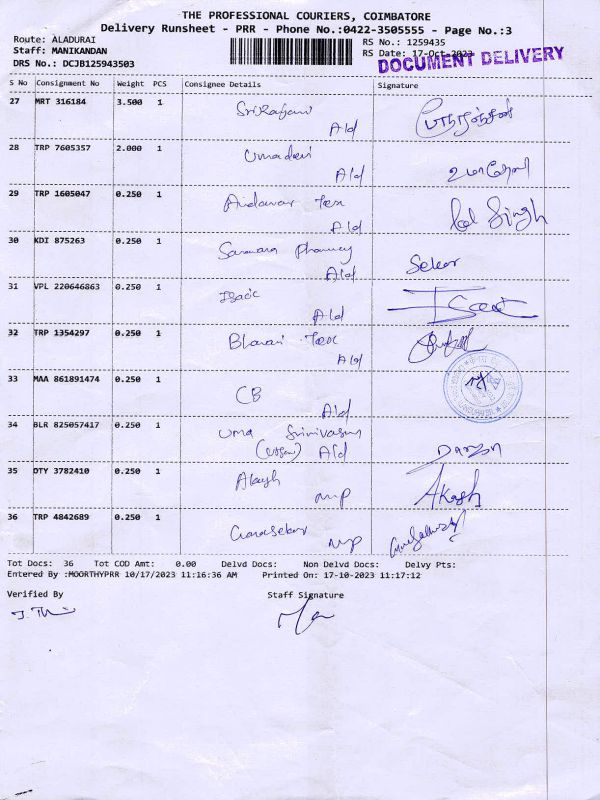 THE PROFESSIONAL COURIERS, COIMBATORE
Delivery Runsheet - PRR - Phone No.:0422-3505555 - Page No.:3
Route: ALADURAI
RS No.: 1259435
Staff: MANIKANDAN
RS Date: 17-Oct-2023
DOCUMENT DELIVERY
DRS No.: DCJB125943503
S No Consignment No Weight PCS Consignee Details Signature
27 MRT 316184 3.500 1
Ald
28 TRP 7605357 2.000 1 Umadevi
Ald உமாதேவி
29 TRP 1605047 0.250 1 Andavar Tex
Ald Singh
30 KDI 875263 0.250 1 Pharmacy
Ald Sekar
31 VPL 220646863 0.250 1 Isaac
Ald Isaac
32 TRP 1354297 0.250 1 Tex
Ald
33 MAA 861891474 0.250 1 CB
Ald
34 BLR 825057417 0.250 1 Uma Srinivasan
Ald
35 DTY 3782410 0.250 1 Akash
mp Akash
36 TRP 4842689 0.250 1
mp
Tot Docs: 36 Tot COD Amt: 0.00 Delvd Docs: Non Delvd Docs: Delvy Pts:
Entered By :MOORTHYPRR 10/17/2023 11:16:36 AM Printed On: 17-10-2023 11:17:12
Verified By Staff Signature